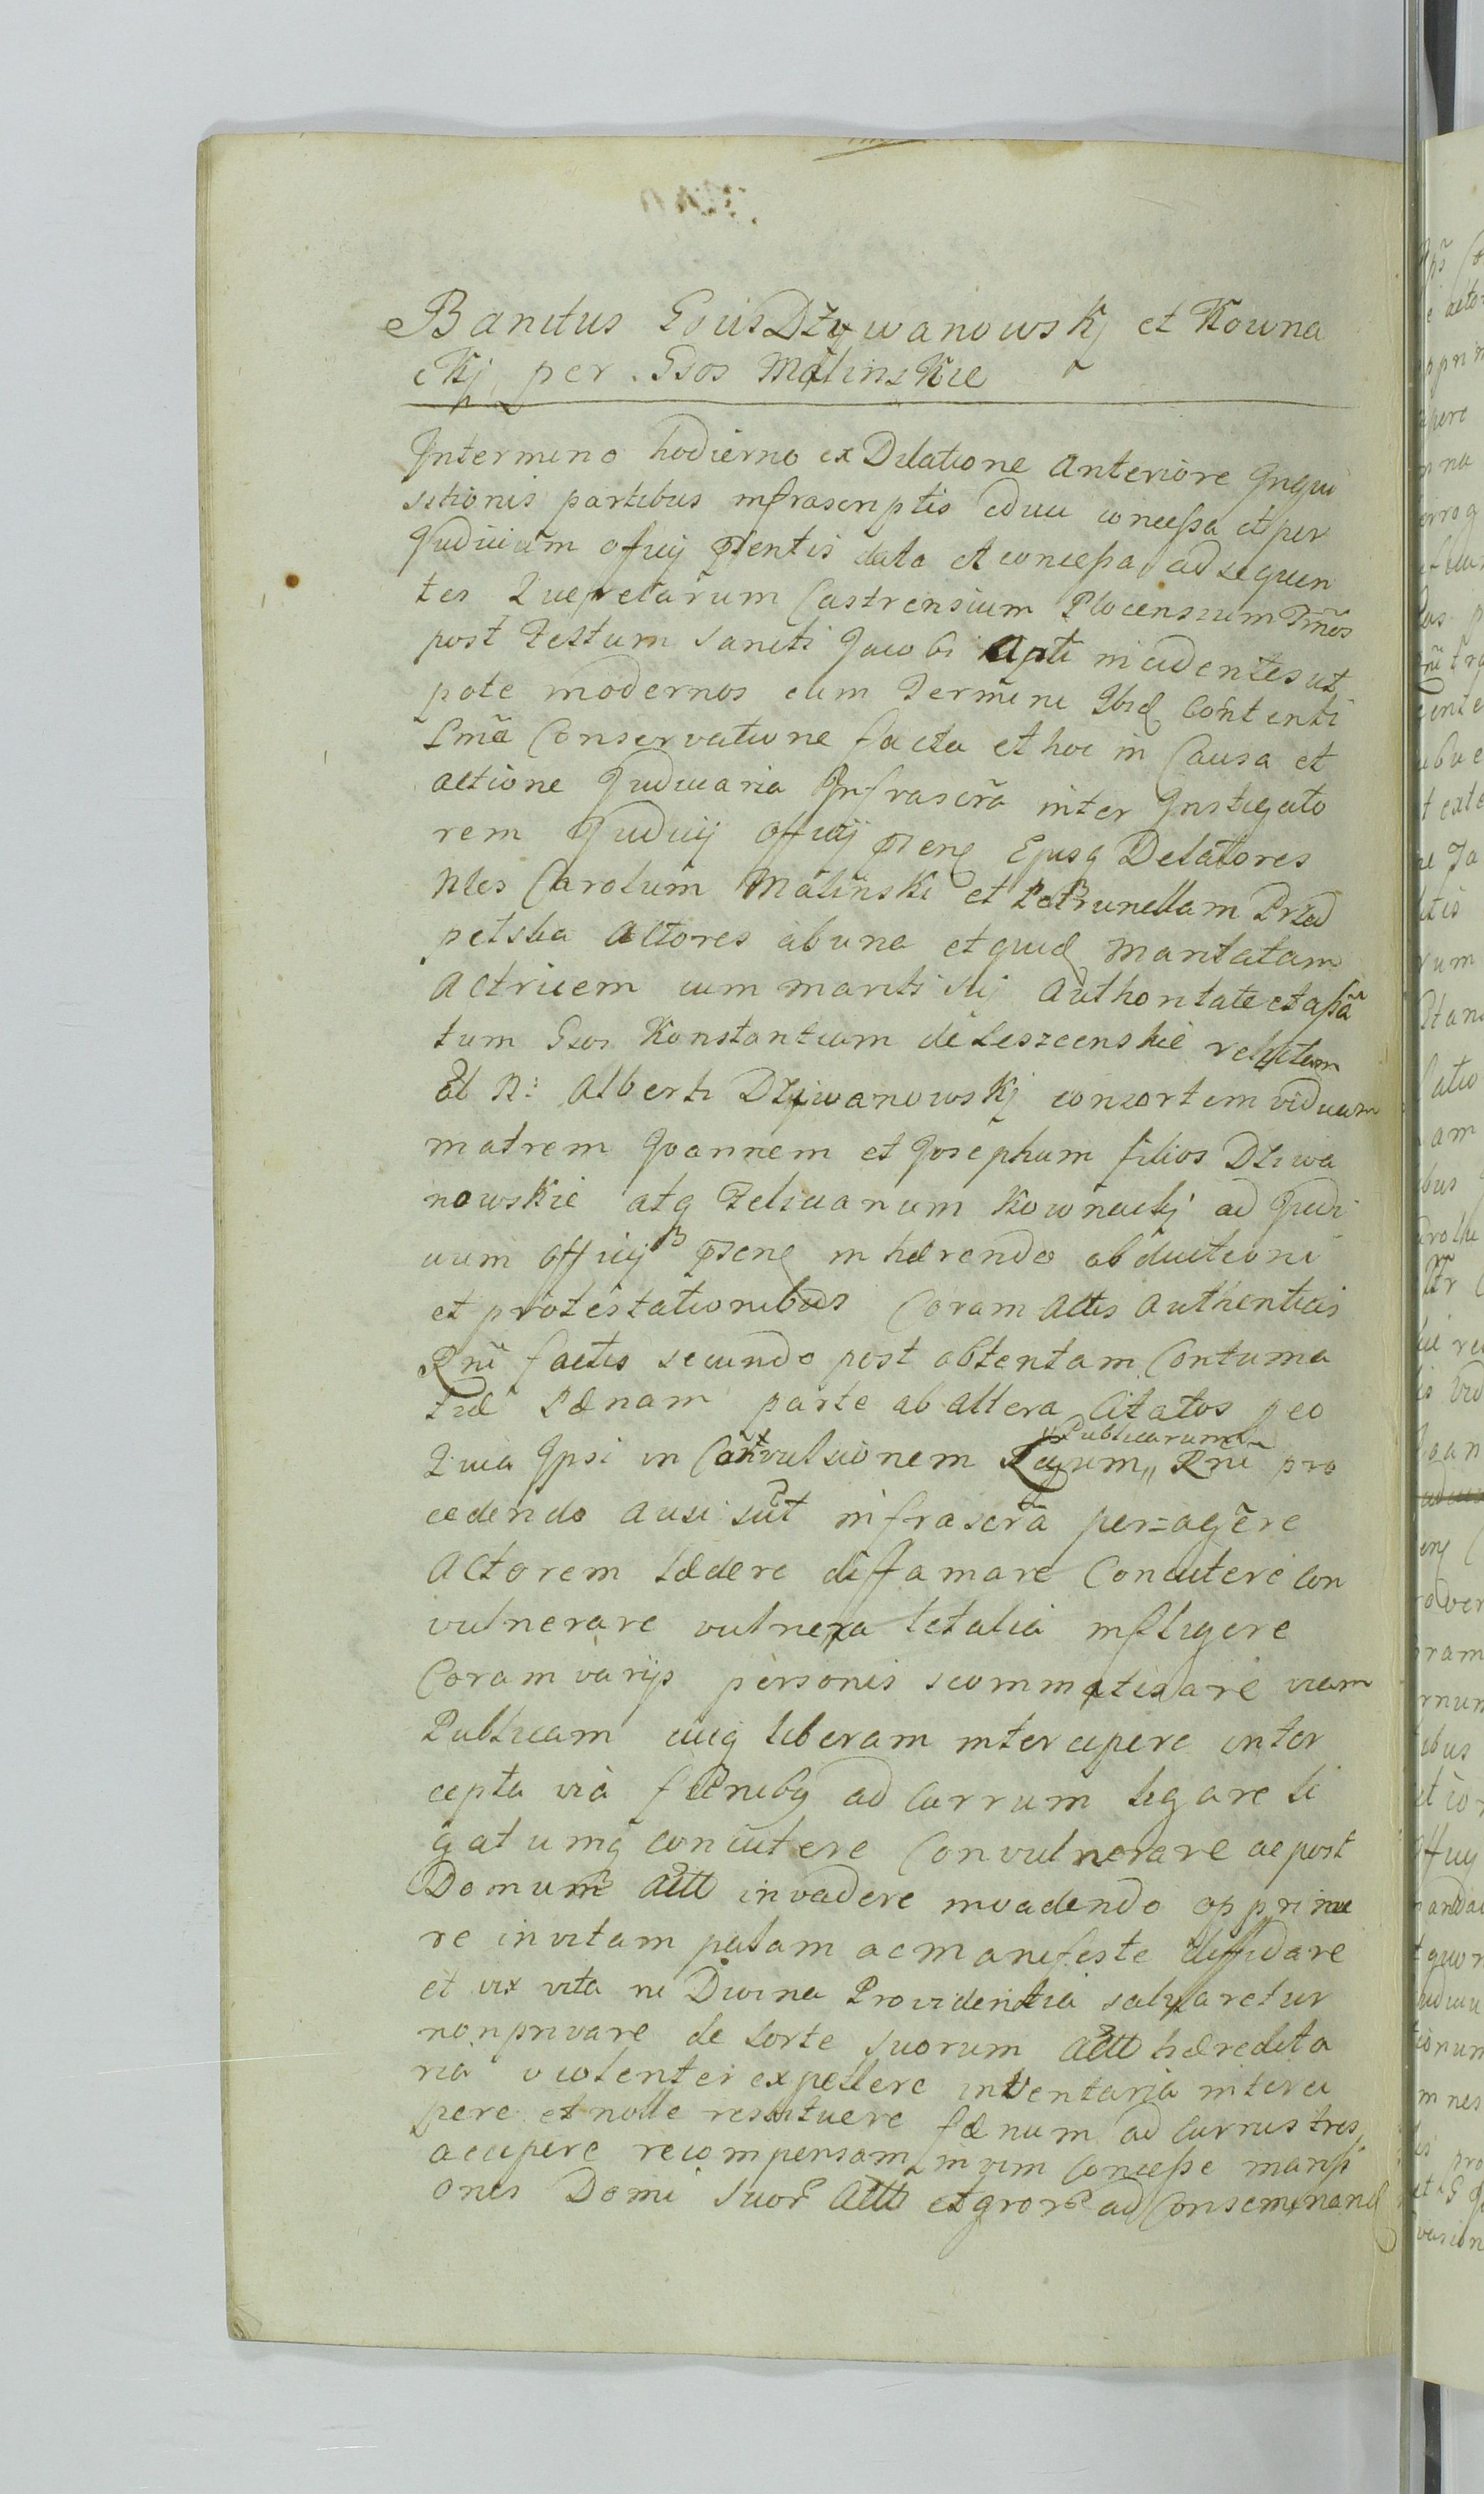 Banitus Gsus Dzywanowskj et Kowna
ckj per Gsos Malinskie
Intermino hodierno ex Dilatione anteriore Inqui
sitionis partibus infrascriptis educ concessa et per
Judicium offcij pntis data et concessa ad sequen
tes Querelarum Castrensium Plocensium Tm̃os
post Festum Sancti Jacobi Apti incidentes ut
pote modernos cum Termini Ibid Contenti
Lm̃a Conservatione facta et hoc in Causa et
actione Judiciaria Infrascr̃a inter Instigato
rem Judicij Officij psenq Ejusq Delatores
Nles Carolum Malinski et Petrunellam Przed
petska Actores ab una et quid maritatam
Actricem cum mariti sui Authoritate et
tum Gsos Konstantiam de Leszcenskie relictam
ol N: Alberti Dziwanowskj consortem viduam
matrem Joannem et Josephum filios Dziwa
nowskie atq Felicianum Kownackj ad Judi
cium Officij psenq inhærendo obductioni
et protestationibus Coram Actis Authenticis
Rni factis secundo post obtentam Contuma
tiæ Pænam parte ab altera Citatos eo
Quia Ipsi in Convulsionem Legum „ Publicarum „ Rni pro
cedendo ausi sũt infrascr̃a per=agere
Actorem lædere diffamare Concutere con
vulnerare vulnera letalia infligere
Coram varijs personis scommatisare viam
Publicam cuiq liberam intercipere inter
cepta via funibq ad currum ligare li
gatumq concutere Convulnerare ac post
Domum Actt invadere invadendo opprime
re invitam palam ac manifeste diffidare
et vix vita ni Divina Providentia salvaretur
non privare de sorte suorum Actt hæredita
ria violenter expellere inventaria interci
pere et nolle restituere fænum ad currus tres
accipere recompensam in vim Concesse mansi
onis Domi Suor Actt et gror ad Conseminand